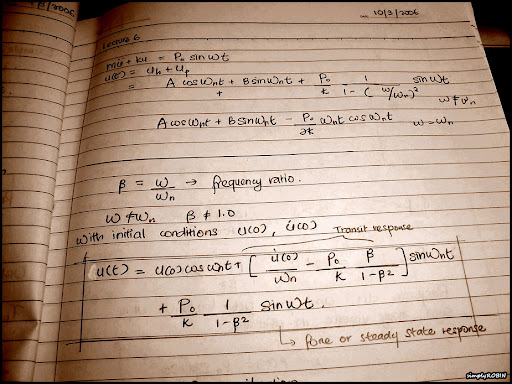 10/3/2006
Lecture 6
mü + ku = P₀ sin ωt
u(t) = u_h + u_p
= A cos ω_n t + B sin ω_n t + P₀/k 1/(1 - (ω/ω_n)²) sin ωt
ω ≠ ω_n
A cos ω_n t + B sin ω_n t - P₀/2k ω_n t cos ω_n t ω = ω_n
β = ω/ω_n → frequency ratio.
ω ≠ ω_n β ≠ 1.0
With initial conditions u(0), u̇(0)
Transit response
u(t) = u(0) cos ω_n t + [u̇(0)/ω_n - P₀/k β/(1-β²)] sin ω_n t
+ P₀/k 1/(1-β²) sin ωt.
or steady state response
simplyROBIN